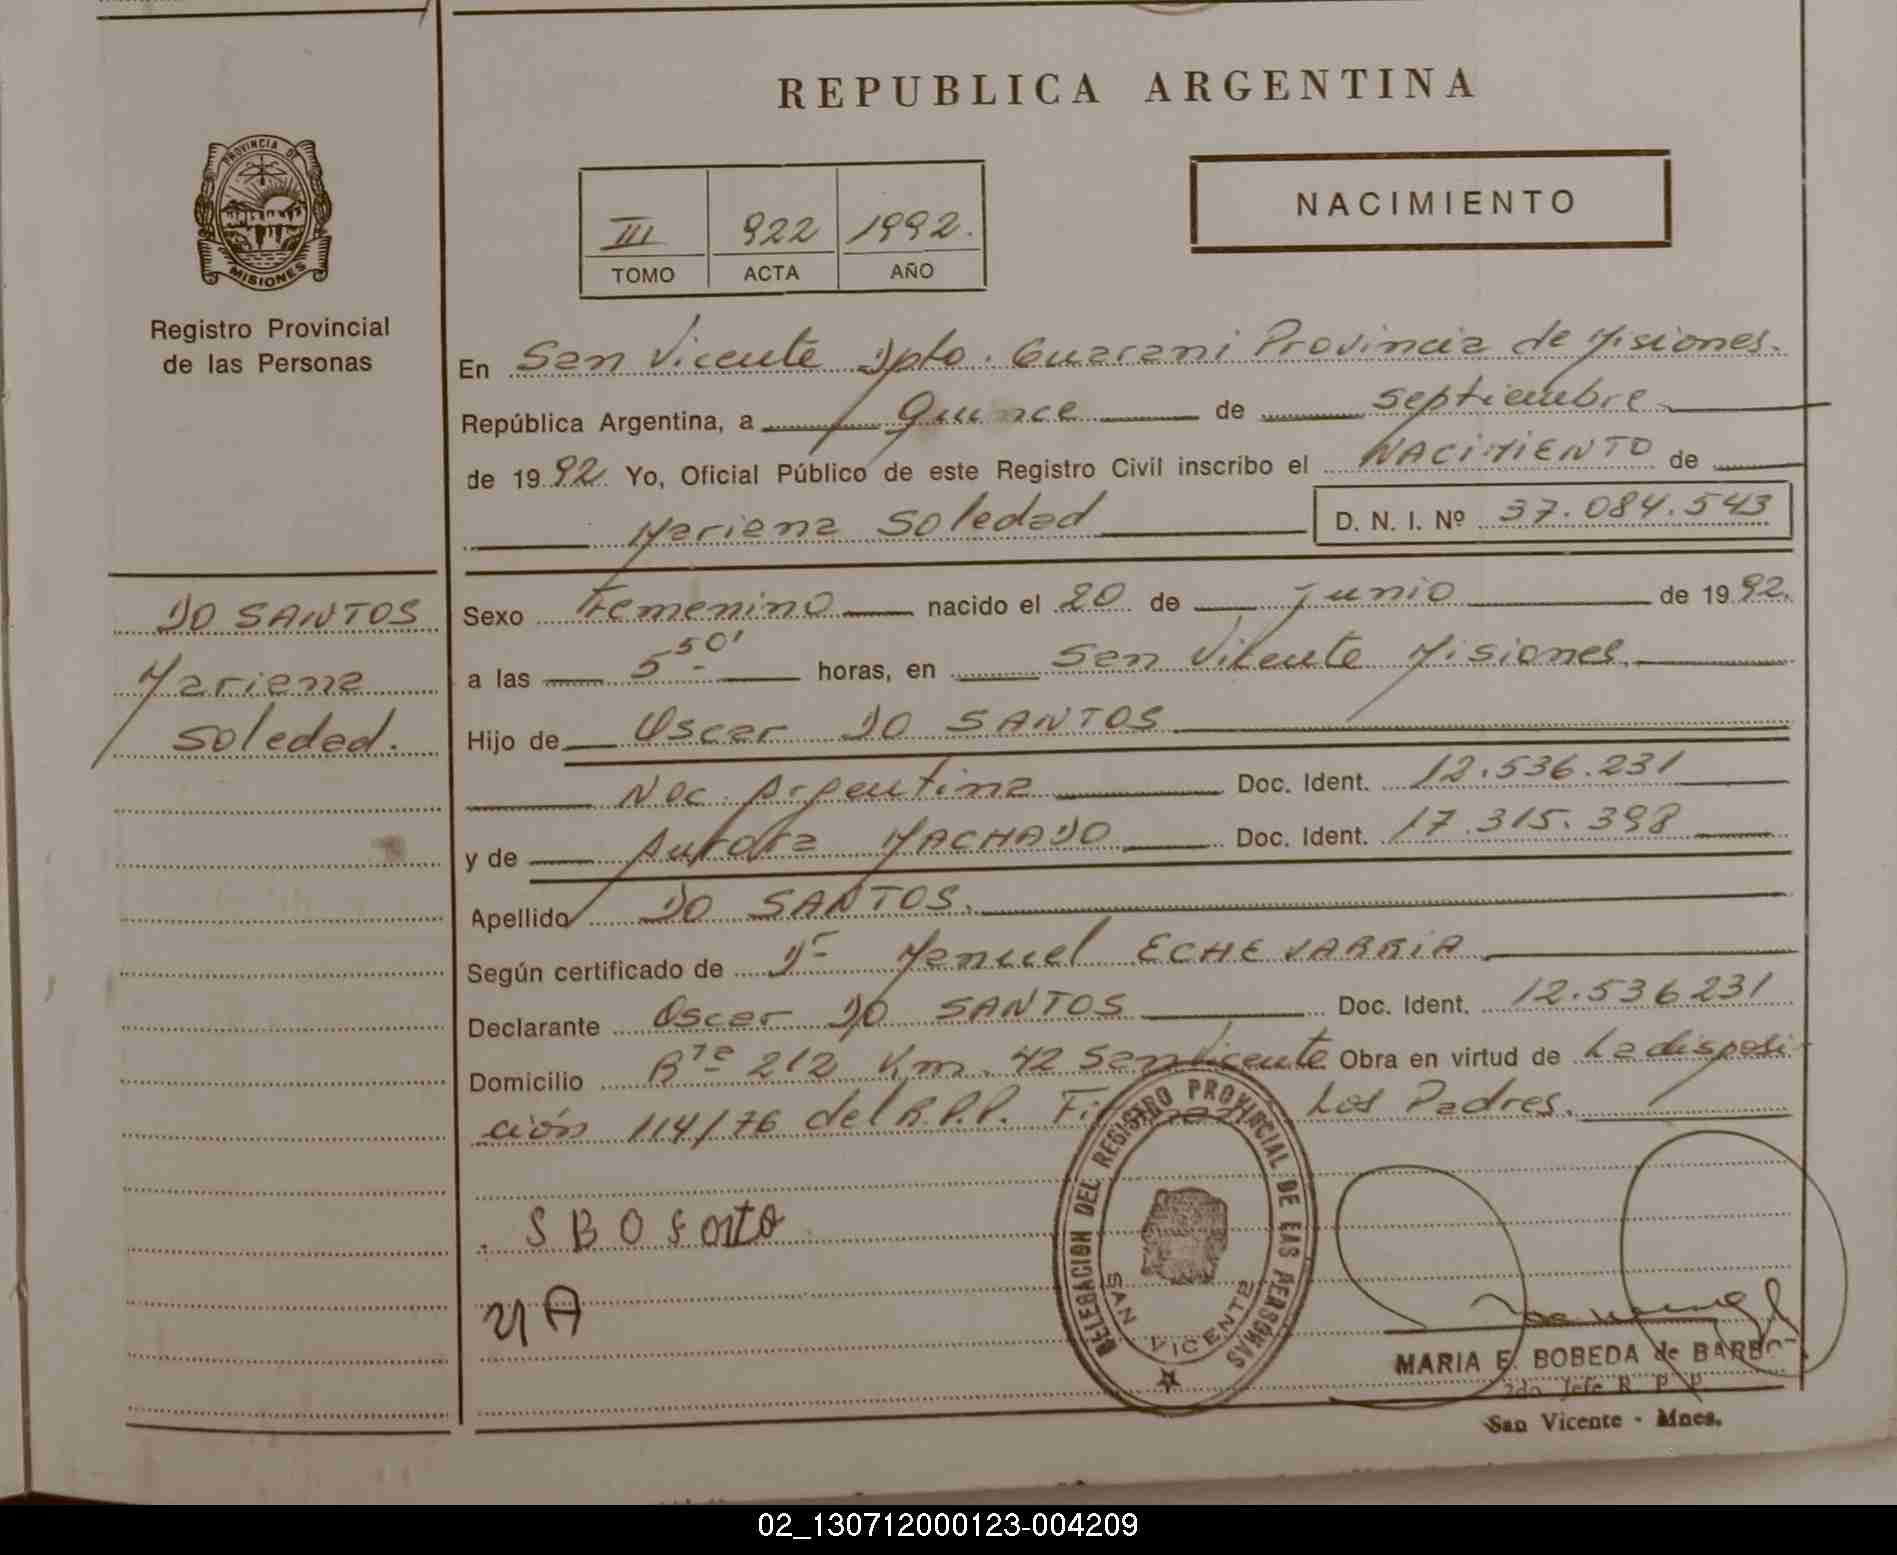 REPUBLICA ARGENTINA
PROVINCIA DE
MISIONES
Registro Provincial
de las Personas
III 922 1992.
TOMO ACTA AÑO
NACIMIENTO
En San Vicente Dpto. Guarani Provincia de Misiones.
República Argentina, a Quince de septiembre
de 1992. Yo, Oficial Público de este Registro Civil inscribo el NACIMIENTO de
Mariana Soledad D. N. I. Nº 37.084.543
DO SANTOS
Mariana
Soledad.
Sexo Femenino nacido el 20 de junio de 1992.
a las 5 50' horas, en San Vicente Misiones.
Hijo de Oscar DO SANTOS
Nac. Argentina Doc. Ident. 12.536.231
y de Aurora MACHADO Doc. Ident. 17.315.398
Apellido DO SANTOS.
Según certificado de Dr Manuel ECHEVARRIA
Declarante Oscar DO SANTOS Doc. Ident. 12.536231
Domicilio Rta 212 Km. 42 San Vicente Obra en virtud de La disposi-
ción 114/76 del R.P.P. Firman Los Padres.
DELEGACION DEL REGISTRO PROVINCIAL DE LAS PERSONAS
SAN VICENTE
MARIA E. BOBEDA de BARBO
2do Jefe R. P. P.
San Vicente - Mnes.
02_130712000123-004209